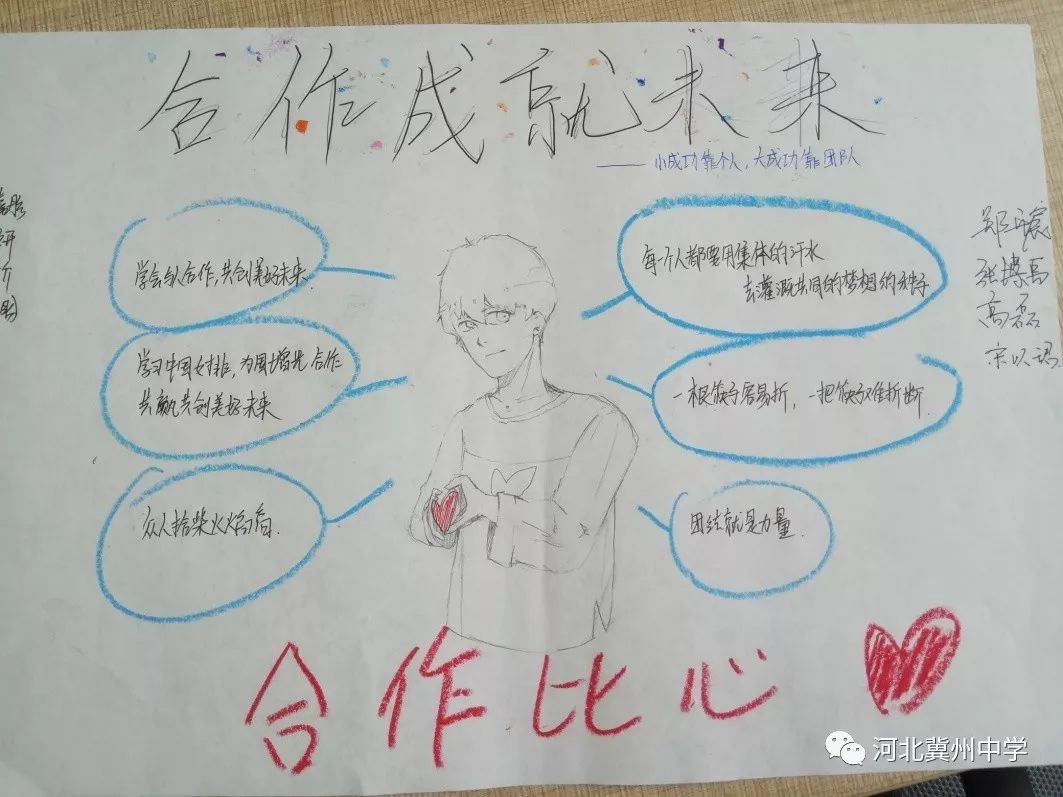 合作成就未来
——小成功靠个人，大成功靠团队
学会与人合作，共创美好未来
每个人都要用集体的汗水
去灌溉共同的梦想的种子
学习中国女排，为国增光 合作
共赢共创美好未来
一根筷子容易折，一把筷子难折断。
众人拾柴火焰高。
团结就是力量
研
介
郑
张博
高磊
宋以
合作比心
河北冀州中学